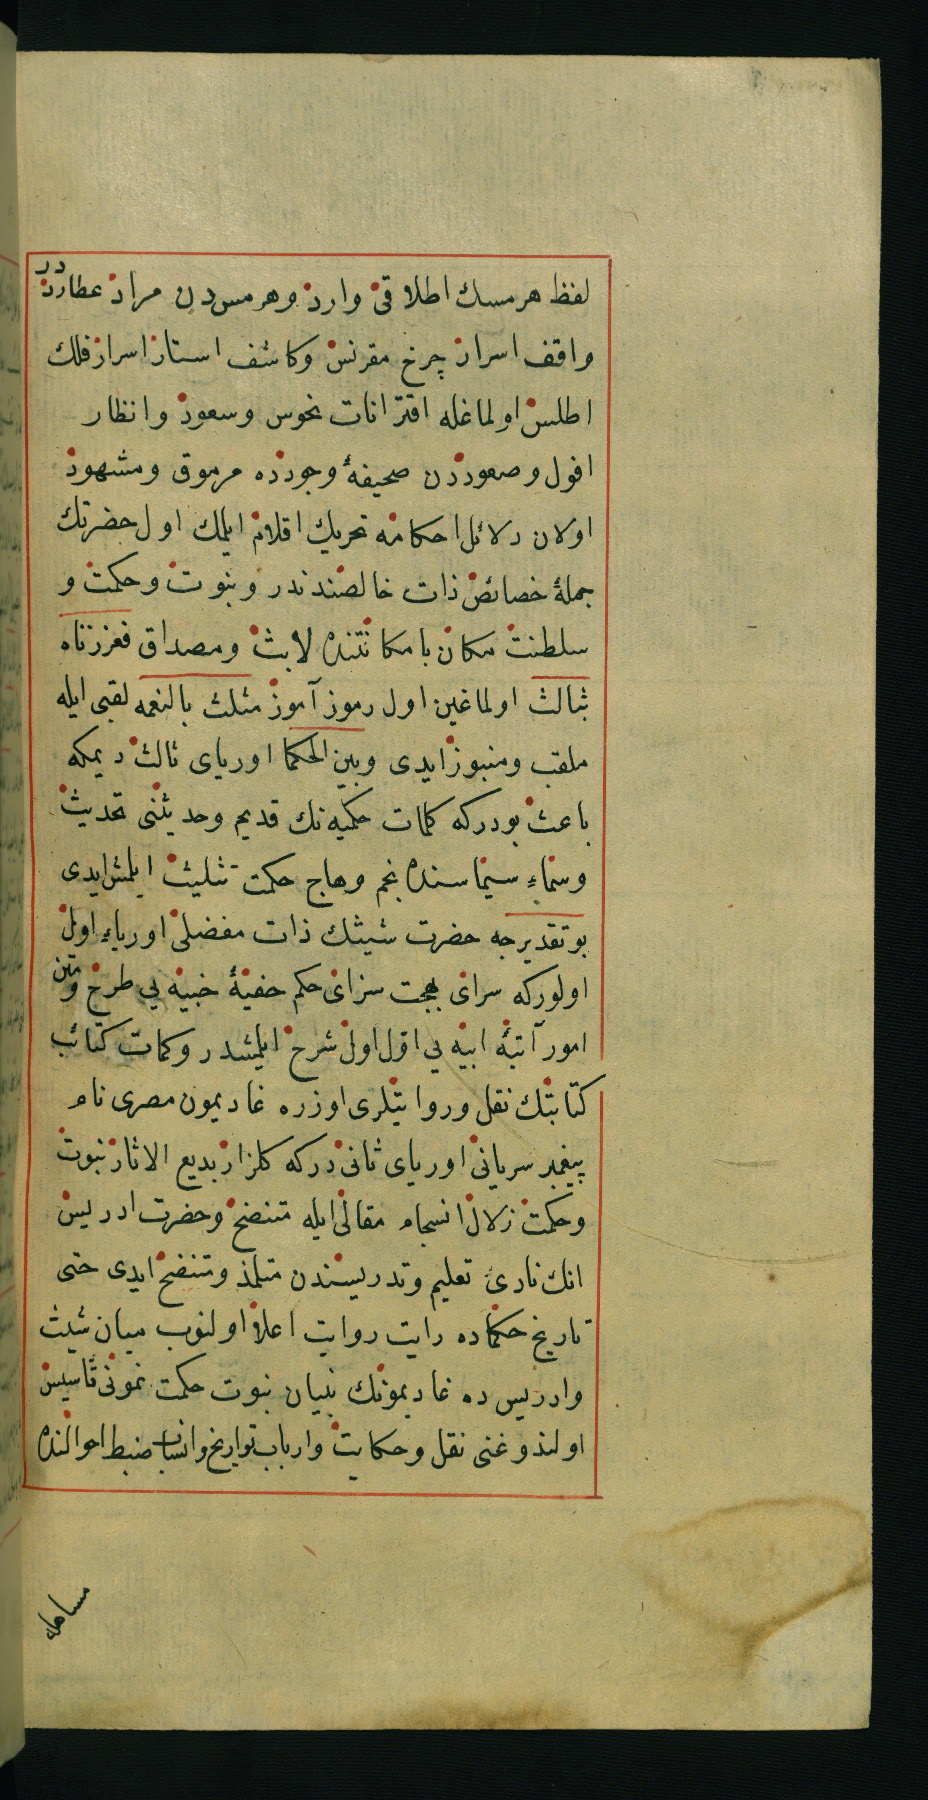 لفظ هرمسك اطلاقی وارد وهرمس دن مراد عطارددر
واقف اسرار چرخ مقرنس وكاشف استار اسرار فلك
اطلس اولماغله اقترانات نحوس وسعود وانظار
افول وصعوددن صحیفهٔ وجودده مرموق ومشهود
اولان دلائل احكامه تحریك اقلام ایلمك اول حضرتك
جملهٔ خصائص ذات خالصندندر ونبوت وحكمت و
سلطنت مكان بامكانتنده لابث ومصداق فعززناه
بثالث اولماغین اول رموز آموز مثلث بالنعمه لقبی ایله
ملقب ومنبوز ایدی وبین الحكما اوریای ثالث دیمكه
باعث بودركه كلمات حكمیه نك قدیم وحدیثنی تحدیث
وسماء سیماسنده نجم وهاج حكمت تثلیث ایلمش ایدی
بو تقدیرجه حضرت شیثك ذات مفضلی اوریاء اول
اولوركه سرای بهجت سزای حكم خفیهٔ خبیه یی طرح ومتن
امور آتیهٔ ابیه یی اقل اول شرح ایلمشدر وكمات كتائب
كتابتك نقل وروایتلری اوزره غادیمون مصری نام
پیغمبر سریانی اوریای ثانی دركه كلزار بدیع الاثار نبوت
وحكمت زلال انسجام مقالی ایله متنضح وحضرت ادریس
انك نادئ تعلیم وتدریسندن متلمذ ومتنضح ایدی حتی
تاریخ حكماده رایت روایت اعلا اولنوب میان شیث
وادریس ده غادیمونك بنیان نبوت حكمت نمونی تأسیس
اولندوغنی نقل وحكایت وارباب تواریخ وانساب ضبط احوالنده
مساهله